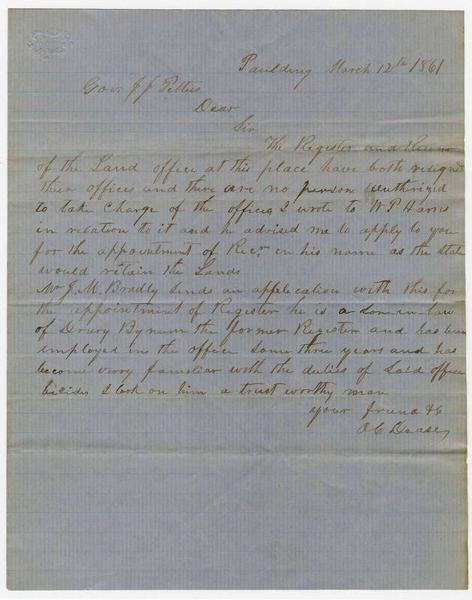 Paulding March 12th 1861
Gov. J J Pettus
Dear
Sir
The Register and
of the Land office at this place have both resigned
their offices and there are no person authorized
to take charge of the offices I wrote to W P Harris
in relation to it and he advised me to apply to you
for the appointment of Recr. in his name as the state
would retain the Lands
Mr J. M. Bradly sends an application with this for
the appointment of Register he is a Son in law
of Drury Bynum the former Register and has been
employed in the office some three years and has
become very familiar with the duties of Said office
besides I look on him a trust worthy man
your friend &c
O C Dease